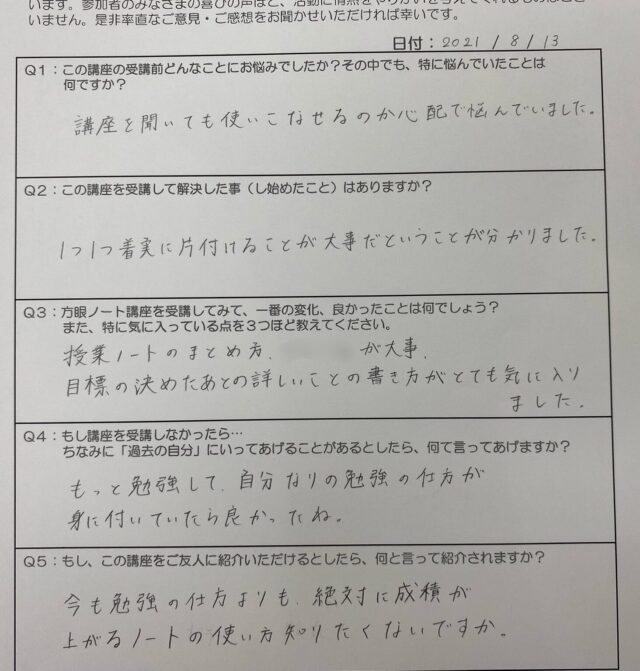 います。参加者のみなさまの喜びの声ほど、活動に情熱をやりがいを与えてくれるものはござ
いません。是非率直なご意見・ご感想をお聞かせいただければ幸いです。
日付：2021 / 8 / 13
Q1：この講座の受講前どんなことにお悩みでしたか？その中でも、特に悩んでいたことは
何ですか？
講座を聞いても使いこなせるのか心配で悩んでいました。
Q2：この講座を受講して解決した事（し始めたこと）はありますか？
1つ1つ着実に片付けることが大事だということが分かりました。
Q3：方眼ノート講座を受講してみて、一番の変化、良かったことは何でしょう？
また、特に気に入っている点を3つほど教えてください。
授業ノートのまとめ方、 が大事、
目標の決めたあとの詳しいことの書き方がとても気に入り
ました。
Q4：もし講座を受講しなかったら…
ちなみに「過去の自分」にいってあげることがあるとしたら、何て言ってあげますか？
もっと勉強して、自分なりの勉強の仕方が
身に付いていたら良かったね。
Q5：もし、この講座をご友人に紹介いただけるとしたら、何と言って紹介されますか？
今も勉強の仕方よりも、絶対に成積が
上がるノートの使い方知りたくないですか。